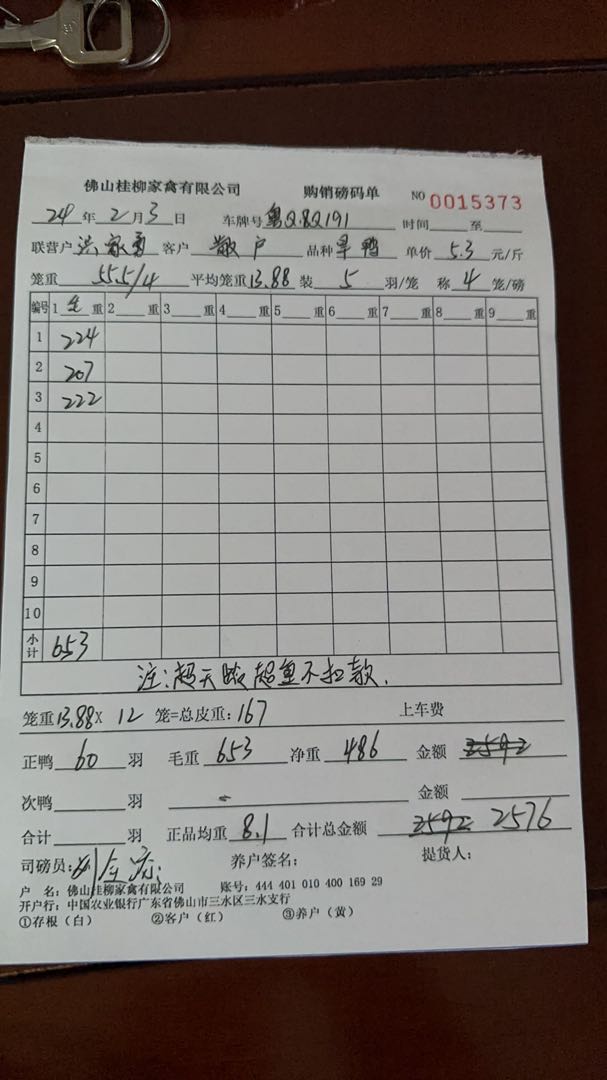 佛山桂柳家禽有限公司 购销磅码单 NO 0015373
24 年 2 月 3 日 车牌号 粤Q8Q191 时间 至
联营户 洪家勇 客户 散户 品种 旱鸭 单价 5.3 元/斤
笼重 55.5/4 平均笼重 13.88 装 5 羽/笼 称 4 笼/磅
编号 1 毛 重 2 重 3 重 4 重 5 重 6 重 7 重 8 重 9 重
1 224
2 207
3 222
4
5
6
7
8
9
10
小计 653
注:超天龄超重不扣款.
笼重 13.88 X 12 笼=总皮重: 167 上车费
正鸭 60 羽 毛重 653 净重 486 金额 2592
次鸭 羽 金额
合计 羽 正品均重 8.1 合计总金额 2592 2576
司磅员: 养户签名: 提货人:
户 名: 佛山桂柳家禽有限公司 账号: 444 401 010 400 169 29
开户行: 中国农业银行广东省佛山市三水区三水支行
①存根（白） ②客户（红） ③养户（黄）